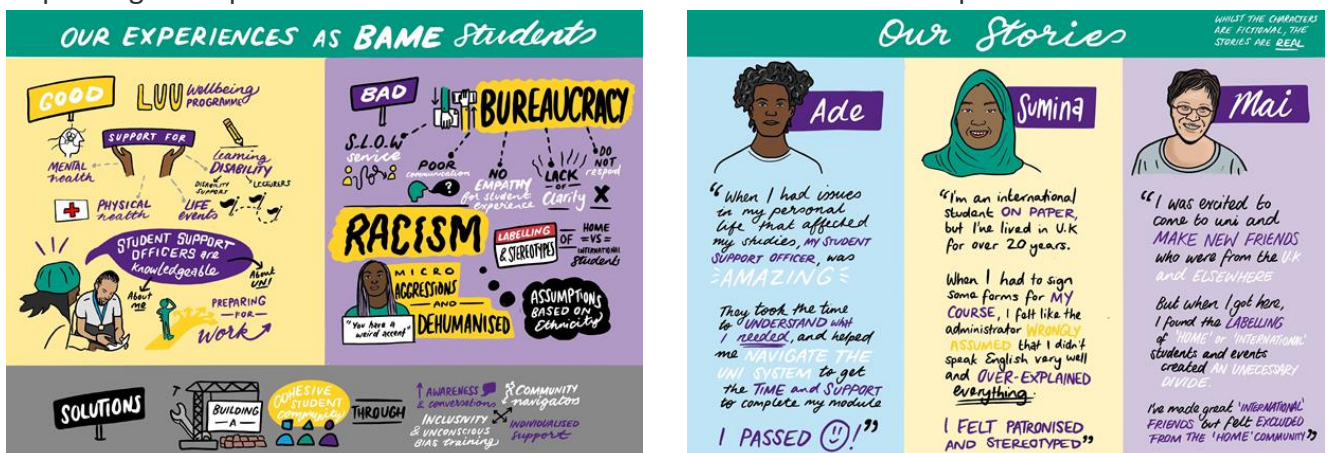 OUR EXPERIENCES AS BAME Students
GOOD
LUU Wellbeing
PROGRAMME
SUPPORT FOR
MENTAL
health
PHYSICAL
health
LIFE
events
Learning
DISABILITY
DISABILITY
SUPPORT
LECTURERS
STUDENT SUPPORT
OFFICERS are
knowledgeable
About
ME
About
UNI
PREPARING
— FOR —
WORK
BAD
BUREAUCRACY
S.L.O.W
service
POOR
communication
NO
EMPATHY
for student
experience
LACK
OF
Clarity
DO
NOT
respond
RACISM
LABELLING
& STEREOTYPES
OF
HOME
= VS =
INTERNATIONAL
Students
MICRO
AGGRESSIONS
— AND —
DEHUMANISED
"You have a
weird accent"
ASSUMPTIONS
BASED ON
Ethnicity
SOLUTIONS
BUILDING
— A —
COHESIVE
STUDENT
community
THROUGH
AWARENESS
& conversations
INCLUSIVITY
& UNCONSCIOUS
BIAS training
COMMUNITY
navigators
INDIVIDUALISED
Support
Our Stories
WHILST THE CHARACTERS
ARE FICTIONAL, THE
STORIES ARE REAL
Ade
"When I had issues
in my personal
life that affected
my studies, MY STUDENT
SUPPORT OFFICER, was
AMAZING
They took the time
to UNDERSTAND what
I needed, and helped
me NAVIGATE THE
UNI SYSTEM to get
the TIME and SUPPORT
to complete my module
I PASSED !"
Sumina
"I'm an international
student ON PAPER,
but I've lived in U.K
for over 20 years.
When I had to sign
some forms for MY
COURSE, I felt like the
administrator WRONGLY
ASSUMED that I didn't
speak English very well
and OVER-EXPLAINED
everything.
I FELT PATRONISED
AND STEREOTYPED"
Mai
"I was excited to
come to uni and
MAKE NEW FRIENDS
who were from the U.K
and ELSEWHERE
But when I got here,
I found the LABELLING
of 'HOME' or 'INTERNATIONAL'
students and events
created AN UNNECESSARY
DIVIDE.
I've made great 'INTERNATIONAL'
FRIENDS but felt EXCLUDED
FROM THE 'HOME' COMMUNITY"